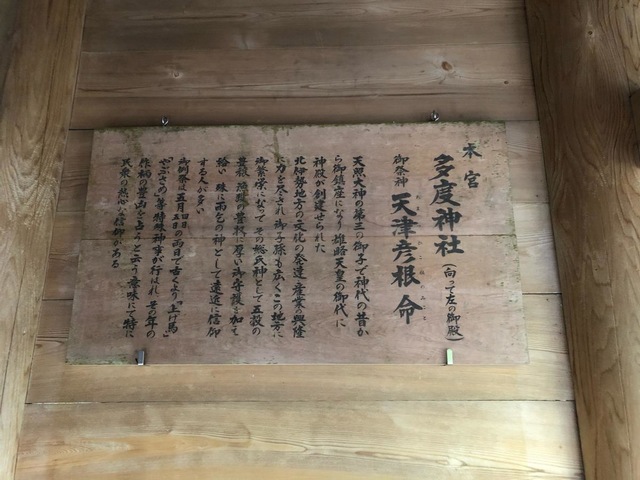 本宮
多度神社（向って左の御殿）
御祭神 天津彦根命
あまつひこねのみこと
天照大神の第三の御子で神代の昔か
ら御鎮座になり雄略天皇の御代に
神殿が創建せられた
北伊勢地方の文化の発達、産業の興隆
に力を尽され御子孫も広くこの地方に
御繁栄になってその総氏神として五穀の
豊穣、漁猟の豊牧に厚い御守護を加え
給い殊に雨乞の神として遠近に信仰
する人が多い
御例祭は五月四日五日の両日で古くより「上げ馬」
「やぶさめ」等特殊神事が行はれ、其の年の
作柄の豊凶を占うと云う意味にて特に
民衆の熱心な信仰がある